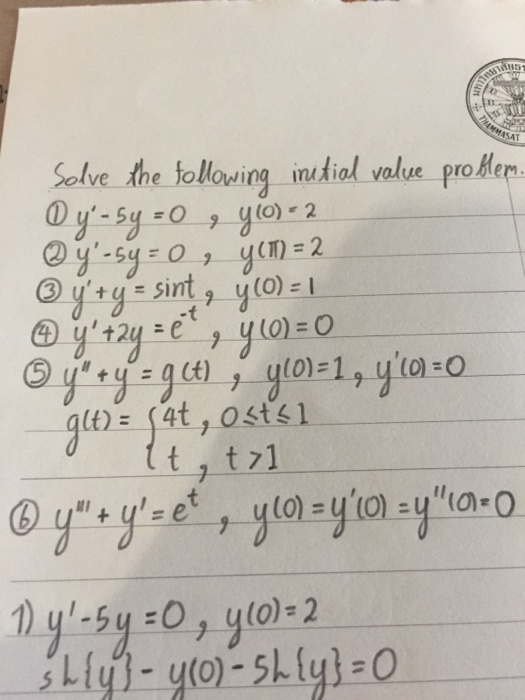 THAMMASAT
Solve the following initial value problem.
① y' - 5y = 0 , y(0) = 2
② y' - 5y = 0 , y(π) = 2
③ y' + y = sint , y(0) = 1
④ y' + 2y = e^-t , y(0) = 0
⑤ y" + y = g(t) , y(0) = 1 , y'(0) = 0
g(t) = { 4t , 0 ≤ t ≤ 1
t , t > 1
⑥ y''' + y' = e^t , y(0) = y'(0) = y''(0) = 0
1) y' - 5y = 0 , y(0) = 2
sL{y} - y(0) - 5L{y} = 0